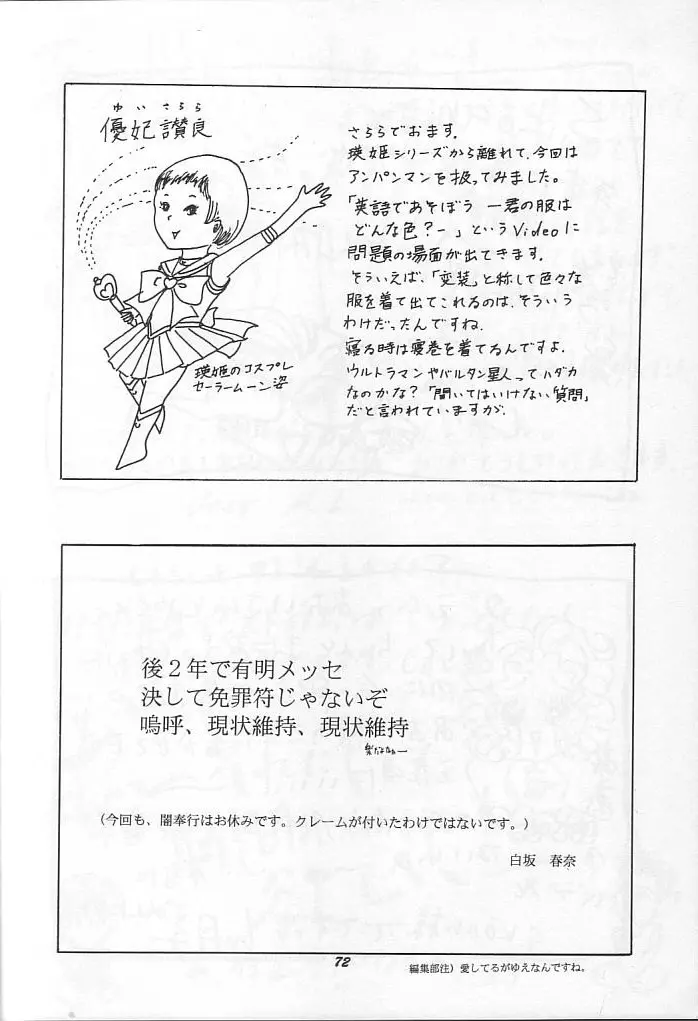 ゆい さらら
優妃讃良
さららでおます。
瑛姫シリーズから離れて、今回は
アンパンマンを扱ってみました。
「英語であそぼう ー君の服は
どんな色？ー」というVideoに
問題の場面が出てきます。
そういえば、「変装」と称して色々な
服を着て出てこれるのは、そういう
わけだったんですね。
寝る時は寝巻を着てるんですよ。
ウルトラマンやバルタン星人ってハダカ
なのかな？「聞いてはいけない質問」
だと言われていますが。
瑛姫のコスプレ
セーラームーン姿
後２年で有明メッセ
決して免罪符じゃないぞ
嗚呼、現状維持、現状維持
（今回も、闇奉行はお休みです。クレームが付いたわけではないです。）
白坂 春奈
72
編集部注）愛してるがゆえなんですね。